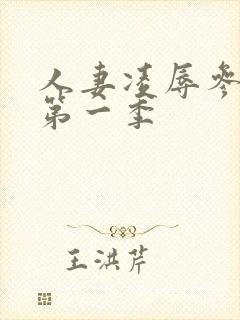 人妻凌辱参
第一季
王洪芹